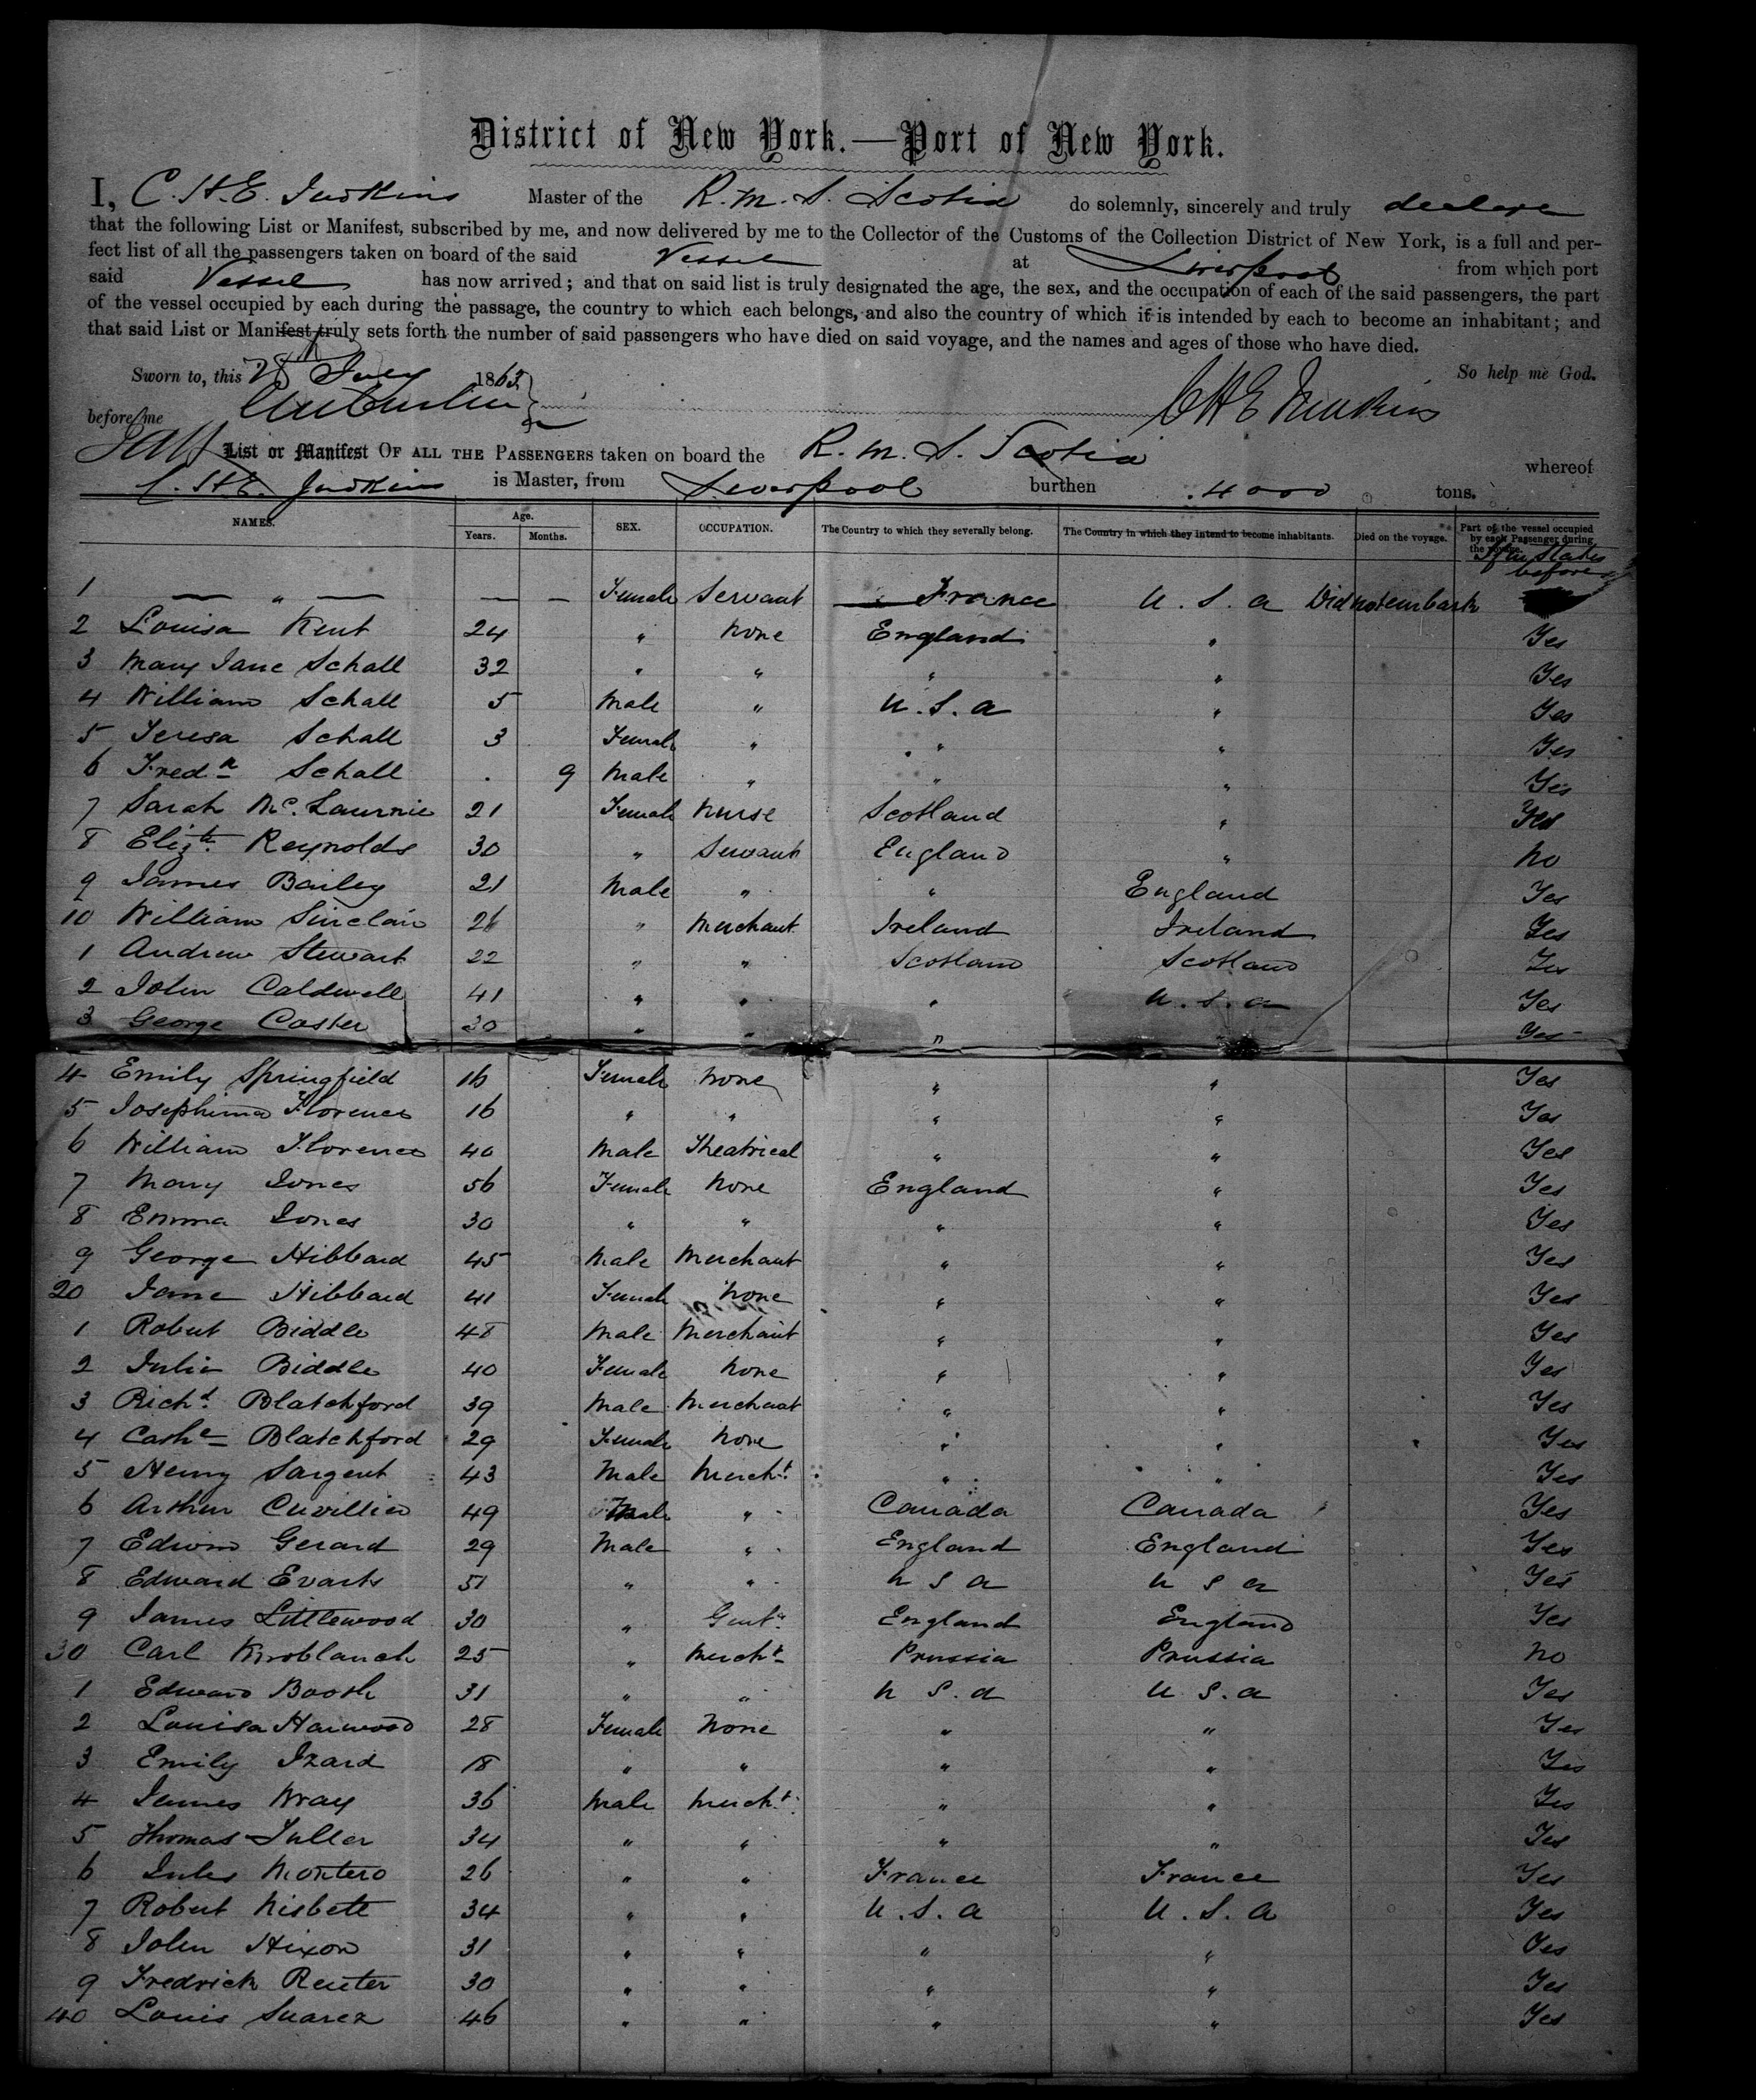 District of New York.—Port of New York.
I, C. H. E. Judkins Master of the R. M. S. Scotia do solemnly, sincerely and truly declare
that the following List or Manifest, subscribed by me, and now delivered by me to the Collector of the Customs of the Collection District of New York, is a full and per-
fect list of all the passengers taken on board of the said Vessel at Liverpool from which port
said Vessel has now arrived; and that on said list is truly designated the age, the sex, and the occupation of each of the said passengers, the part
of the vessel occupied by each during the passage, the country to which each belongs, and also the country of which it is intended by each to become an inhabitant; and
that said List or Manifest truly sets forth the number of said passengers who have died on said voyage, and the names and ages of those who have died.
Sworn to, this July 186 So help me God.
before me C H E Judkins
List or Manifest OF ALL THE PASSENGERS taken on board the R. M. S. Scotia whereof
C. H. E. Judkins is Master, from Liverpool burthen 4000 tons.
NAMES. Age. Years. Months. SEX. OCCUPATION. The Country to which they severally belong. The Country in which they intend to become inhabitants. Died on the voyage. Part of the vessel occupied by each Passenger during the voyage.
If in States before
1 — " — — — Female Servant France U. S. a Did not embark
2 Louisa Kent 24 " None England " Yes
3 Mary Jane Schall 32 " " " " Yes
4 William Schall 5 Male " U. S. a " Yes
5 Teresa Schall 3 Female " " " Yes
6 Fredk Schall . 9 Male " " " Yes
7 Sarah Mc. Laurnie 21 Female Nurse Scotland " Yes
8 Elizth Reynolds 30 " Servant England " No
9 James Bailey 21 Male " " England Yes
10 William Sinclair 26 " Merchant Ireland Ireland Yes
1 Andrew Stewart 22 " " Scotland Scotland Yes
2 John Caldwell 41 " " " U. S. a Yes
3 George Coster 30 " " " Yes
4 Emily Springfield 16 Female None " " Yes
5 Josephina Florence 16 " " " " Yes
6 William Florence 40 Male Theatrical " " Yes
7 Mary Jones 56 Female None England " Yes
8 Emma Jones 30 " " " " Yes
9 George Hibbard 45 Male Merchant " " Yes
20 Jane Hibbard 41 Female None " " Yes
1 Robert Biddle 48 Male Merchant " " Yes
2 Julia Biddle 40 Female None " " Yes
3 Richd. Blatchford 39 Male Merchant " " Yes
4 Cathe Blatchford 29 Female None " " Yes
5 Henry Sargent 43 Male Mercht. " " Yes
6 Arthur Cuvillier 49 Male " Canada Canada Yes
7 Edwin Gerard 29 Male " England England Yes
8 Edward Evarts 51 " " U S a U S a Yes
9 James Littlewood 30 " Gentn. England England Yes
30 Carl Knoblauch 25 " Mercht Prussia Prussia No
1 Edward Booth 31 " " U S. a U S. a Yes
2 Louisa Harwood 28 Female None " " Yes
3 Emily Izard 18 " " " " Yes
4 James Wray 36 Male Mercht. " " Yes
5 Thomas Fuller 34 " " " " Yes
6 Jules Montero 26 " " France France Yes
7 Robert Nisbett 34 " " U. S. a U. S. a Yes
8 John Hixon 31 " " " " Yes
9 Fredrick Reuter 30 " " " " Yes
40 Louis Suarez 46 " " " " Yes